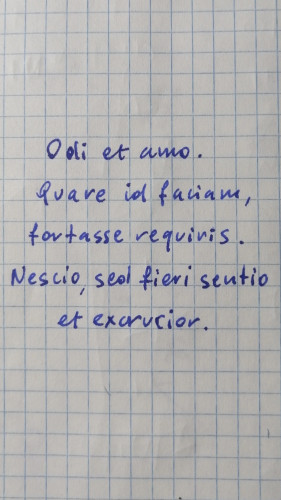 Odi et amo.
Quare id faciam,
fortasse requiris.
Nescio, sed fieri sentio
et excrucior.